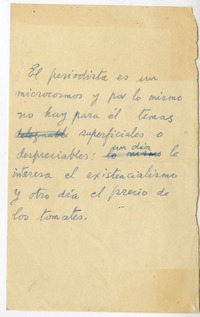 El periodista es un
microcosmos y por lo mismo
no hay para él temas
superficiales o
despreciables: un día le
interesa el existencialismo
y otro día el precio de
los tomates.